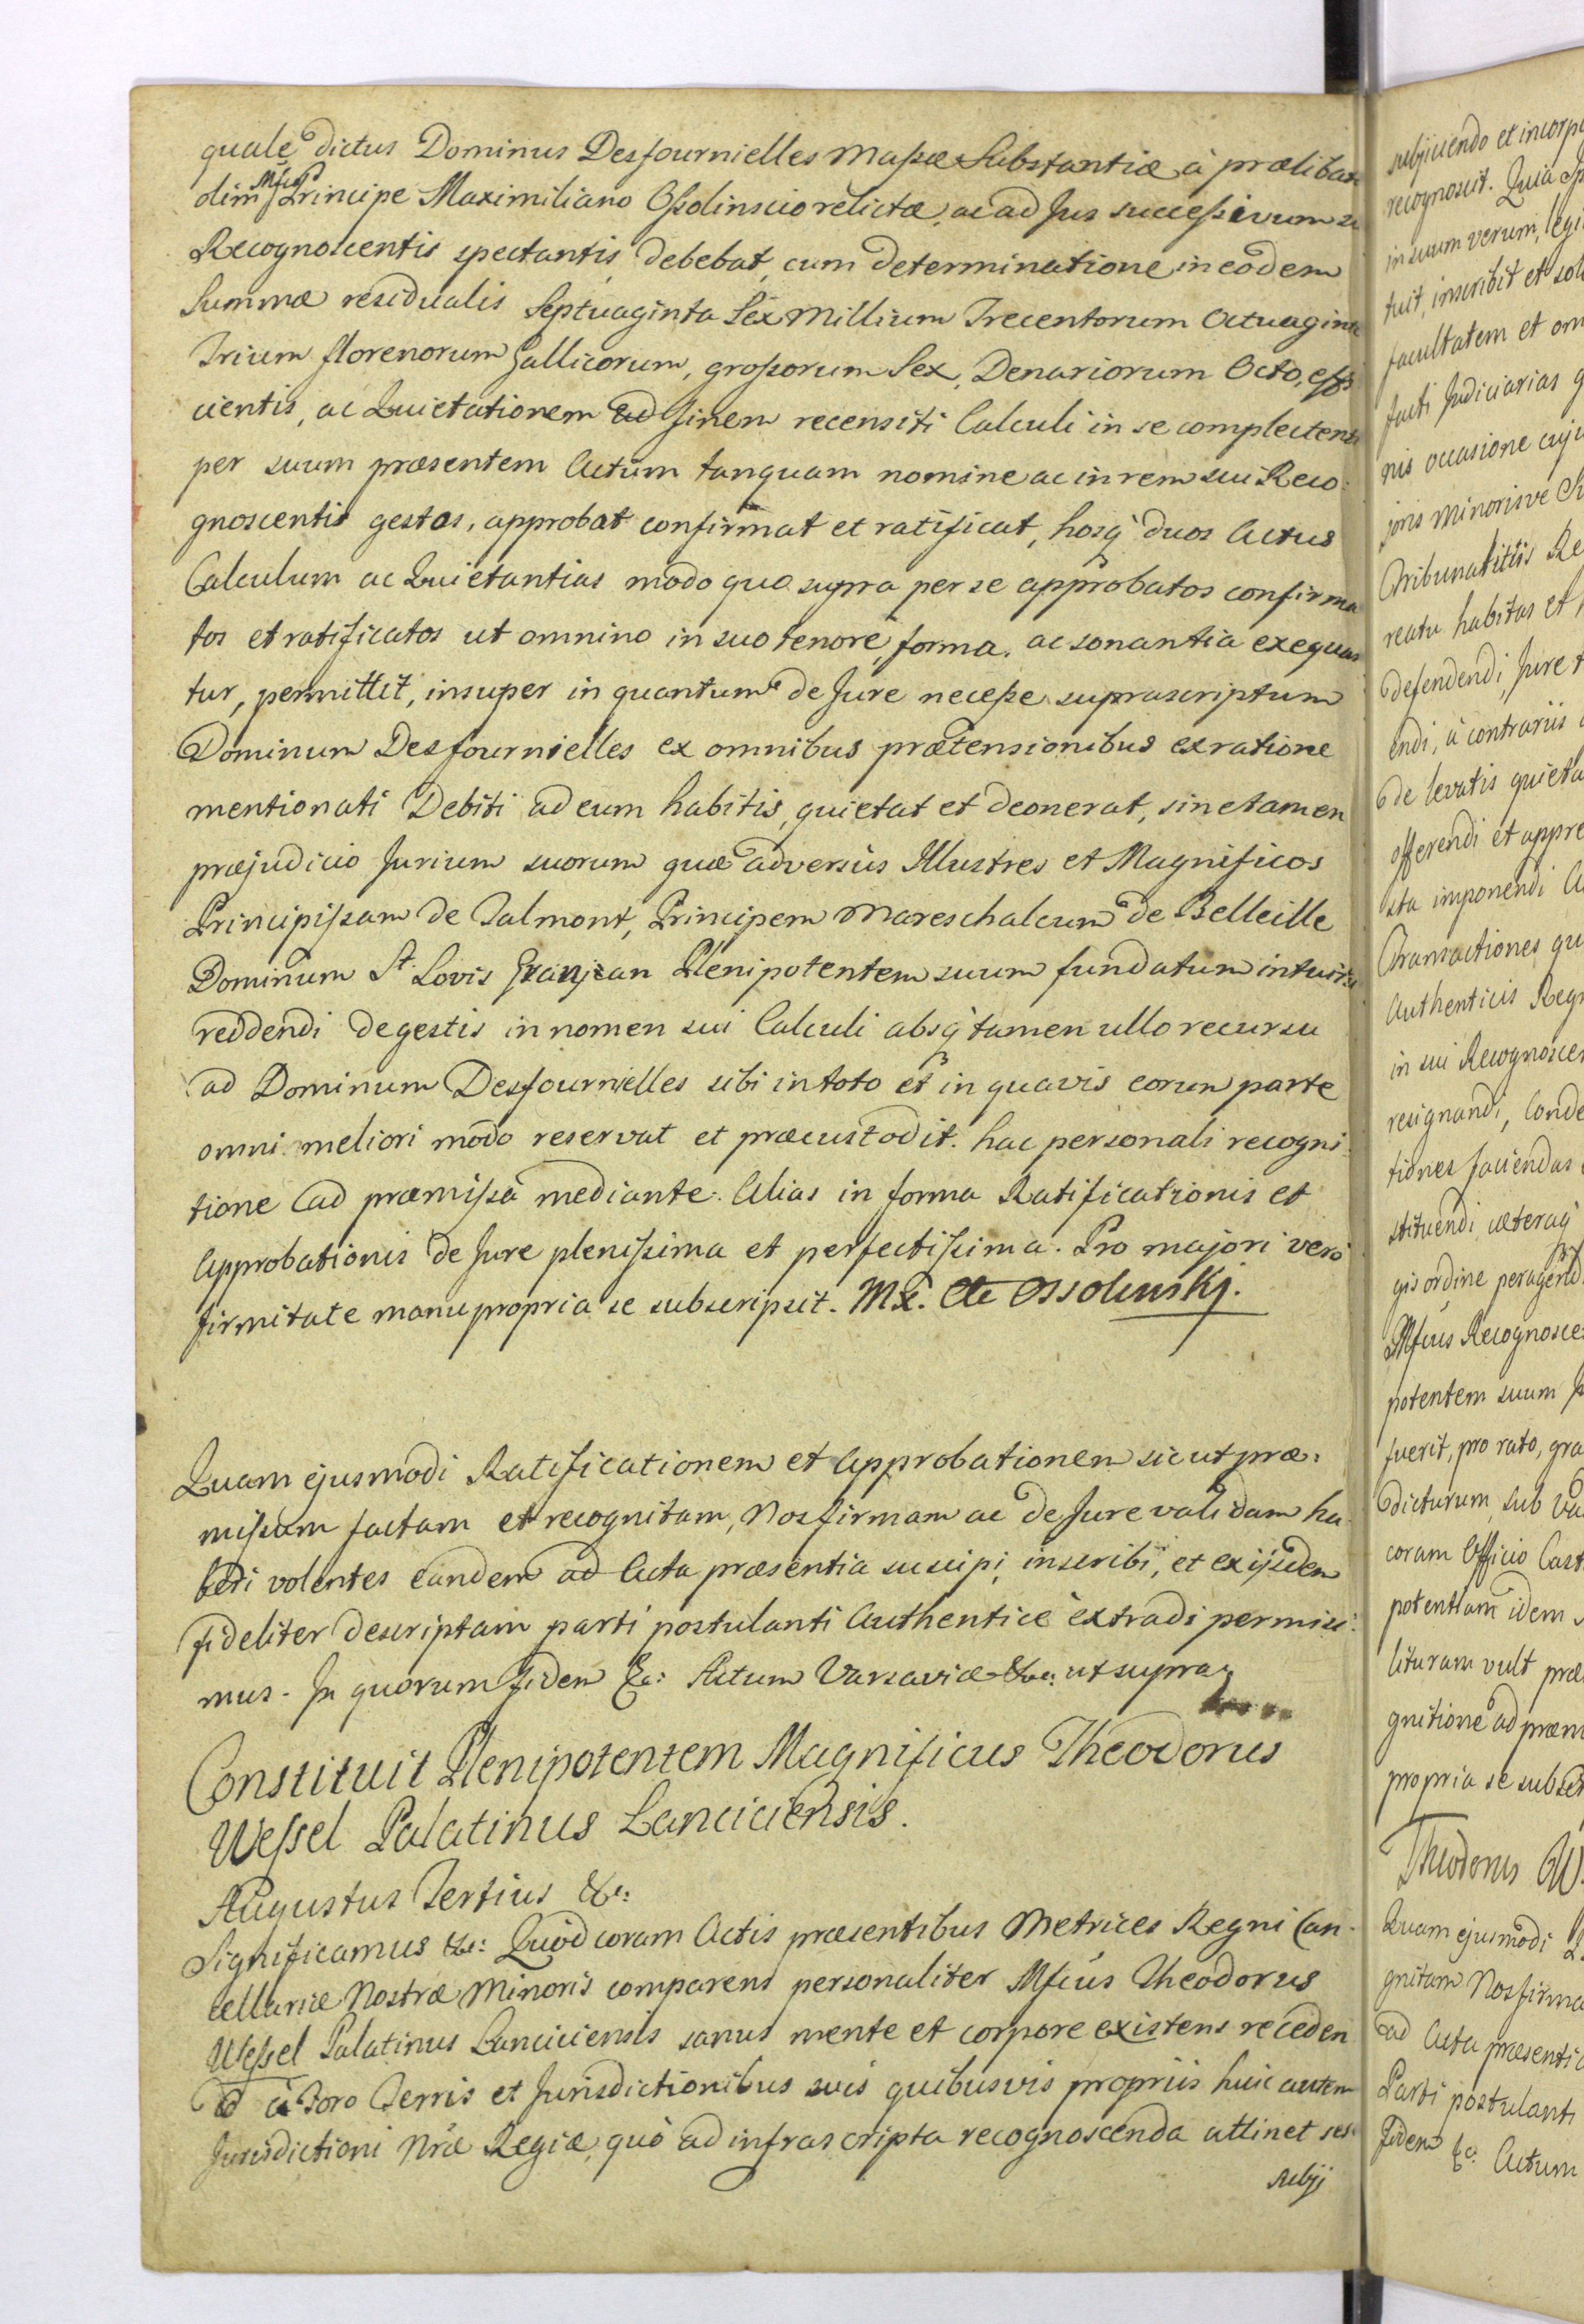 quale dictus Dominus Desfournielles Massæ Substantiæ à prælibato
olim Mfico Principe Maximiliano Ossolinscio relictæ, ac ad Jus successivum sui
Recognoscentis spectantis, debebat, cum determinatione in eodem
Summæ residualis Septuaginta Sex Millium Trecentorum Octuaginta
Trium florenorum Gallicorum, grossorum Sex, Denariorum Octo, effi
cientis, ac Quietationem ad finem recensiti Calculi in se complectens
per suum præsentem Actum tanquam nomine ac in rem sui Reco
gnoscentis gestos, approbat confirmat et ratificat, hosq duos Actus
Calculum ac Quietantias modo quo supra per se approbatos confirma
tos et ratificatos ut omnino in suo tenore, forma, ac sonantia exequan
tur, permittit, insuper in quantum de Jure necesse suprascriptum
Dominum Desfournielles ex omnibus prætensionibus ex ratione
mentionati Debiti ad eum habitis, quietat et deonerat, sine tamen
præjudicio Jurium suorum quæ adversùs Illustres et Magnificos
Principissam de Talmont, Principem Mareschalcum de Belleille
Dominum St. Lovis Granjean Plenipotentem suum fundatum intuitu
reddendi de gestis in nomen sui Calculi absq tamen ullo recursu
ad Dominum Desfournielles sibi in toto et in quavis eorum parte
omni meliori modo reservat et præcustodit. hac personali recogni
tione ad præmissa mediante. Alias in forma Ratificationis et
Approbationis de Jure plenissima et perfectissima. Pro majori verò
firmitate manu propria se subscripsit. Mx. Cte Ossolinskj.
Quam ejusmodi Ratificationem et Approbationem sicut præ
missum factam et recognitam, Nos firmam ac de Jure validam ha
beri volentes eandem ad Acta præsentia suscipi, inscribi, et ex ijsdem
fideliter descriptam parti postulanti Authenticè extradi permisi
mus. In quorum fidem &c: Actum Varsaviæ &c: ut supra
Constituit Plenipotentem Magnificus Theodorus
Wessel Palatinus Lanciciensis.
Augustus Tertius &c:
Significamus &c: Quod coram Actis præsentibus Metrices Regni Can
cellariæ Nostræ Minoris comparens personaliter Mficus Theodorus
Wessel Palatinus Lanciciensis sanus mente et corpore existens receden
do à Foro Terris et Jurisdictionibus suis quibusvis propriis huic autem
Jurisdictioni Nræ Regiæ, quò ad infrascripta recognoscenda attinet sese
subjj
subjiciendo et incorp
recognoscit. Quia
in suum verum, legi
tuit, inscribit et sol
facultatem et om
facti Judiciarias q
nis occasione cuju
joris minorisve
Tribunalitiis Re
reatu habitas et
defendendi, Jure
endi, à contrariis
de levatis quieta
offerendi et appre
sta imponendi
Transactiones qu
Authenticis Regn
in sui Recognoscen
resignandi, Conde
tiones faciendas
stituendi, cæteraq
gis ordine peragend
Mficus Recognosce
potentem suum
fuerit, pro rato, gra
dicturum, sub va
coram Officio Cast
potentiam idem
lituram vult præ
gnitione ad præm
propria se subscr
Theodorus W.
Quam ejusmodi
gnitam Nos firma
ad Acta præsentia
Parti postulanti
Fidem &c: Actum